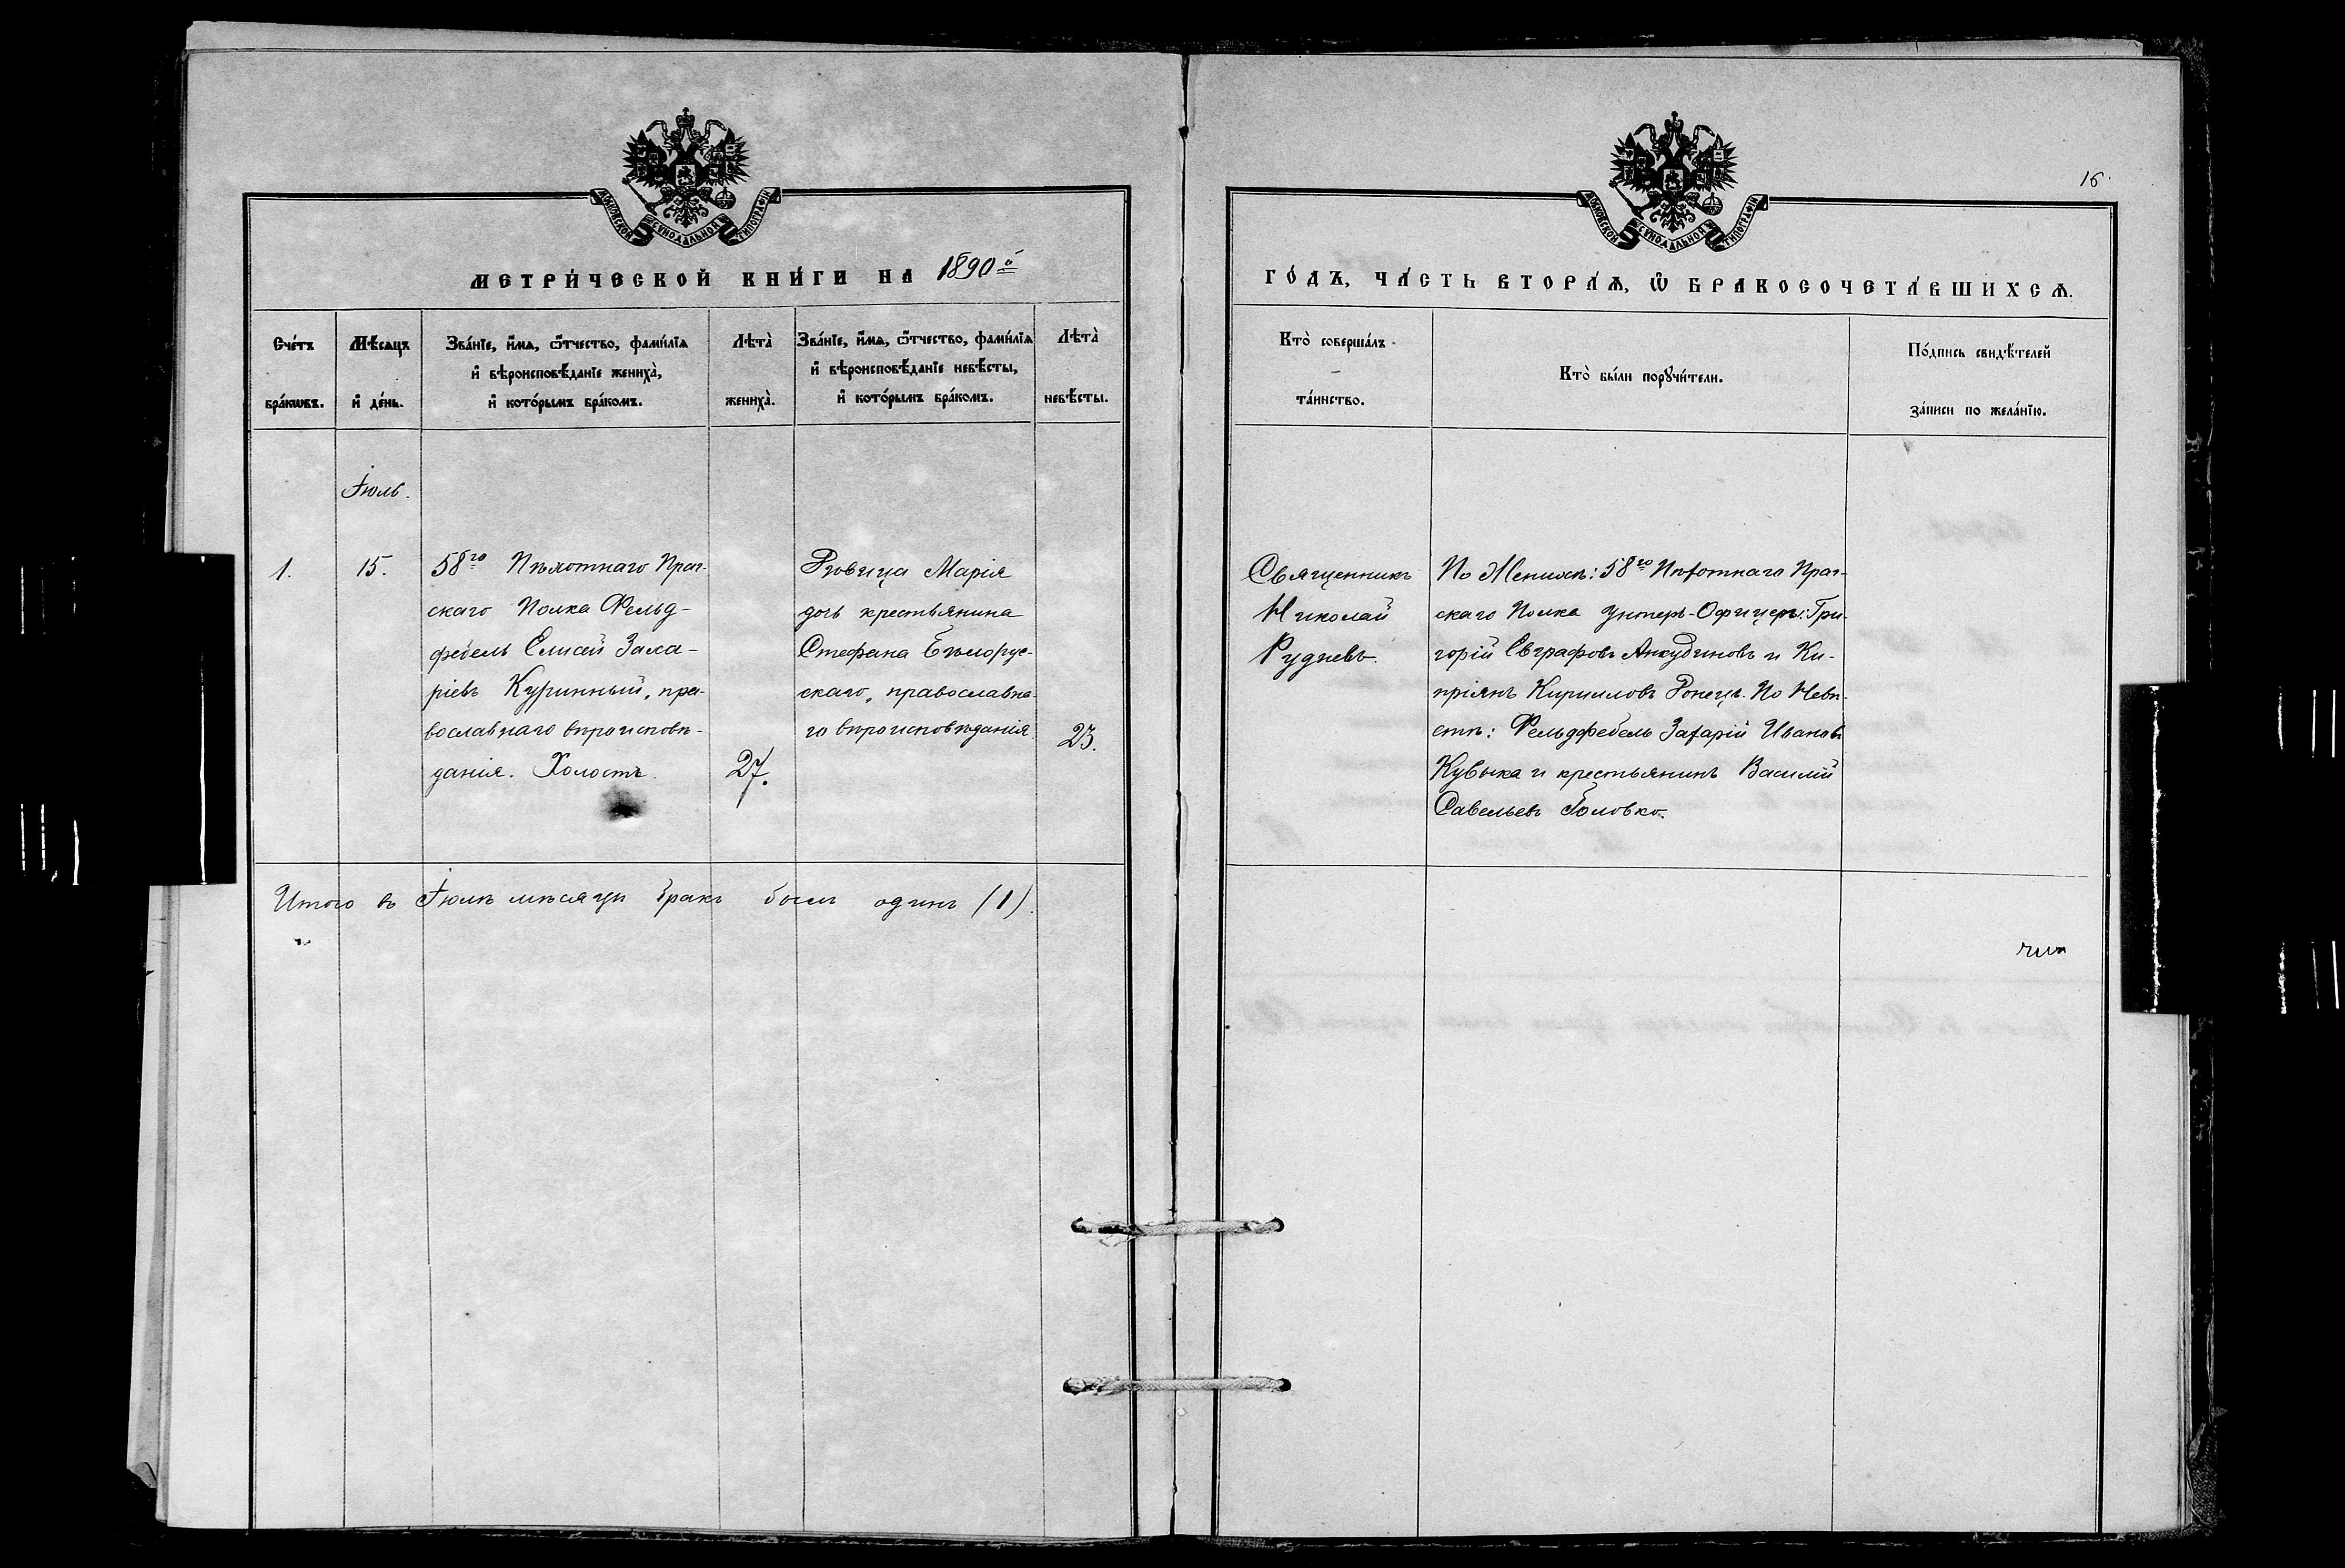 МОСКОВСКОЙ СѴНОДАЛЬНОЙ ТИПОГРАФІИ
МЕТРИ́ЧЕСКОЙ КНИ́ГИ НА 1890й
Сче́тъ бра́кѡвъ.
Мѣ́сѧцъ и҆ де́нь.
Зва́нїе, и҆́мѧ, ѻ҆́тчество, фами́лїѧ
и҆ вѣроисповѣ́данїе жениха̀,
и҆ кото́рымъ бра́комъ.
Лѣта̀ жениха̀.
Зва́нїе, и҆́мѧ, ѻ҆́тчество, фами́лїѧ
и҆ вѣроисповѣ́данїе невѣ́сты,
и҆ кото́рымъ бра́комъ.
Лѣта̀ невѣ́сты.
Іюль.
1.
15.
58го Пѣхотнаго Праг-
скаго Полка Фельд-
фебель Елисей Заха-
ріевъ Куринный, пра-
вославнаго вѣроисповѣ-
данія. Холостъ.
27.
Дѣвица Марія
дочь крестьянина
Стефана Бѣлорус-
скаго, православна-
го вѣроисповѣданія
23.
Итого въ Іюлѣ мѣсяцѣ бракъ былъ одинъ (1).
16.
МОСКОВСКОЙ СѴНОДАЛЬНОЙ ТИПОГРАФІИ
ГО́ДЪ, ЧА́СТЬ ВТОРА́Ѧ, Ѡ҆ БРАКОСОЧЕТА́ВШИХСѦ.
Кто̀ соверша́лъ
та́инство.
Кто̀ бы́ли порꙋчи́тели.
По́дпись свидѣ́телей
за́писи по жела́нїю.
Священникъ
Николай
Рудневъ
По Женихѣ: 58го Пѣхотнаго Праг-
скаго Полка Унтеръ-Офицеръ: Гри-
горій Евграфовъ Анкудиновъ и Ки-
пріянъ Кирилловъ Донецъ. По Невѣ-
стѣ: Фельдфебель Захарій Ивановъ
Кувыка и крестьянинъ Василій
Савельевъ Головко.